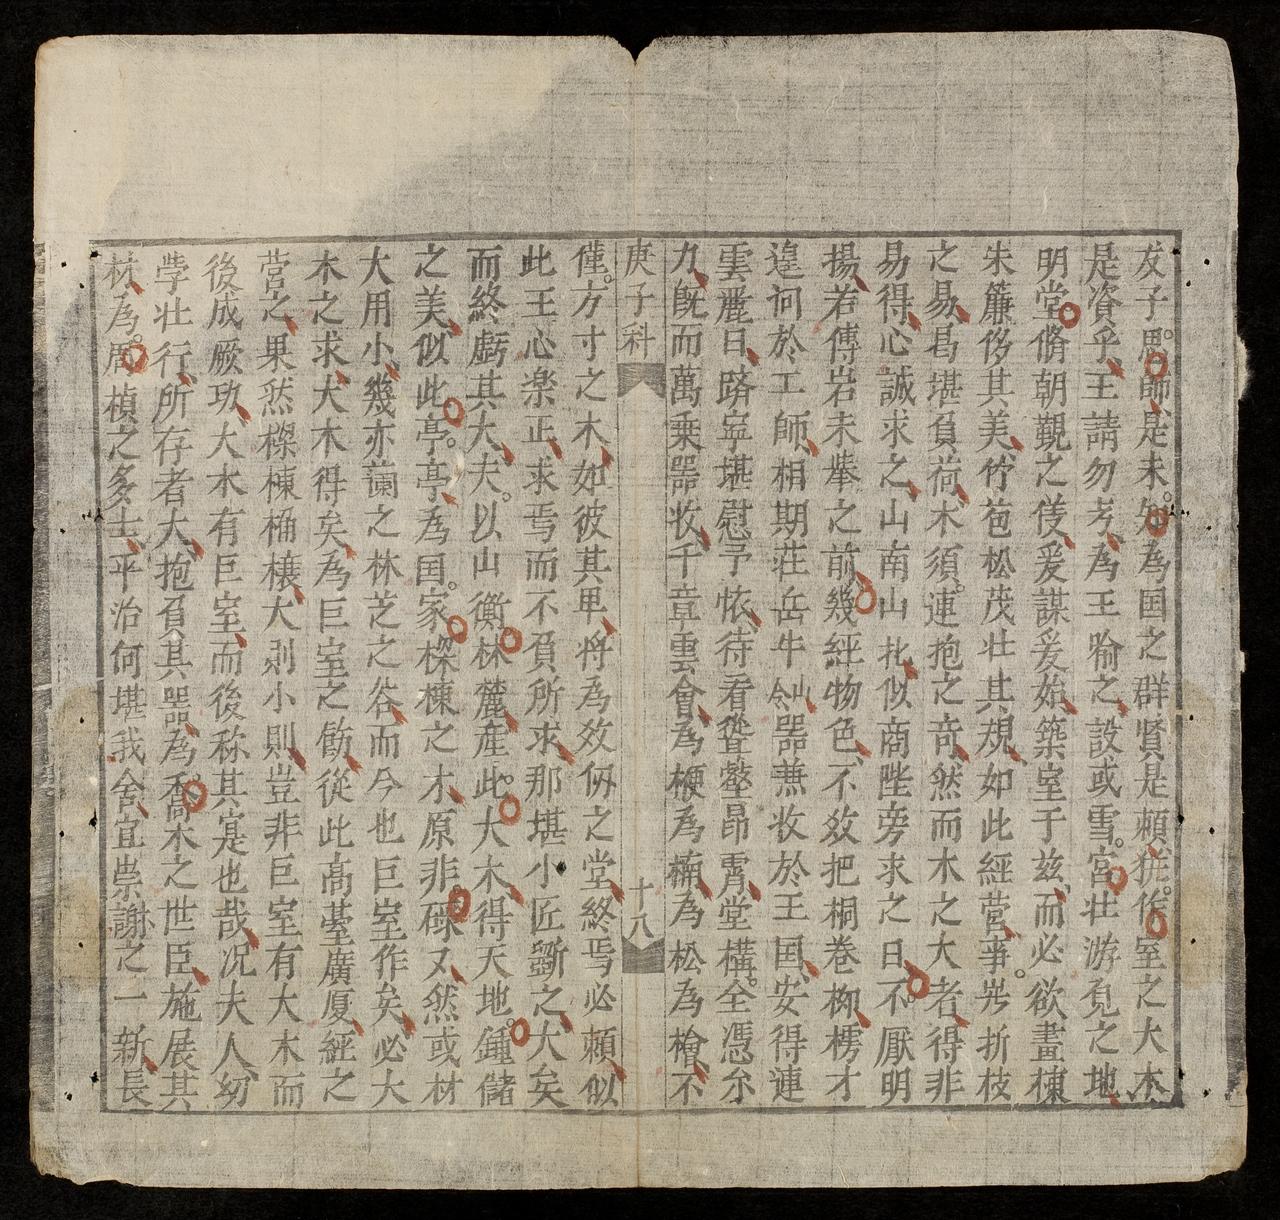 友子思師是未知為国之群賢是頼㧞作室之大木
是資乎王請勿考為王喻之設或雪宮壮游覓之地
明堂脩朝覲之儀爰謀爰始築室于兹而必欲畫棟
朱簾侈其美竹苞松茂壮其規如此經营事岂折枝
之易曷堪負荷木須連抱之竒然而木之大者得非
易得心誠求之山南山北似商陛旁求之日不厭明
揚若傅岩未举之前幾経物色不效把桐巻栁樗才
遑问於工師相期荘岳牛山器蕪收於王国安得連
雲麗日躋寧堪慰予懷待看聳壑昂霄堂構全憑尓
力既而萬乗器收千章雲會為梗為楠為松為檜不
庚子科
十八
僅方寸之木如彼其卑将為效伤之堂終焉必頼似
此王心楽正求焉而不負所求那堪小匠斵之大矣
而終虧其大夫以山衡林麓産此大木得天地鍾儲
之美似此亭亭為国家樑棟之木原非碌又然或材
大用小幾亦蘭之林芝之谷而今也巨室作矣必大
木之求大木得矣為巨室之餙從此高䑓廣厦経之
营之果然樑棟桷榱大則小則豈非巨室有大木而
後成厥功大木有巨室而後称其寔也哉况夫人幼
斈壮行所存者大抱負其器為喬木之世臣施展其
林為周楨之多士平治何堪我舍宜崇謝之一新長